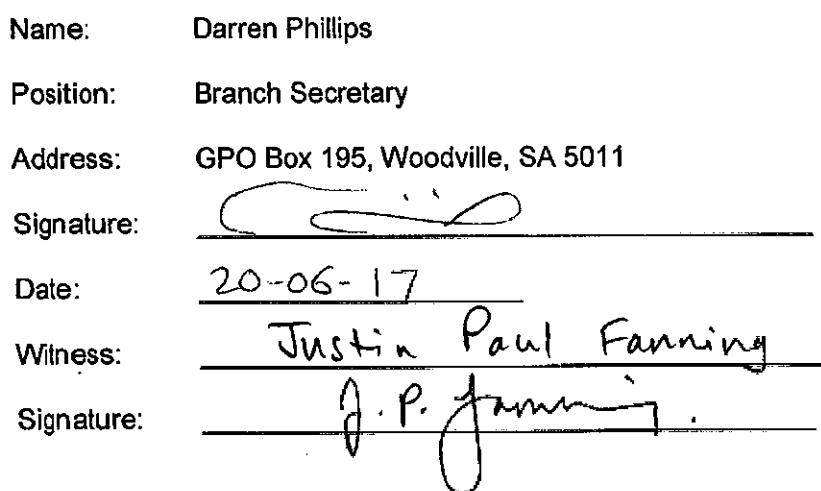 Name: Darren Phillips
Position: Branch Secretary
Address: GPO Box 195, Woodville, SA 5011
Signature:
Date: 20-06-17
Witness: Justin Paul Fanning
Signature: J. P. Fanning.